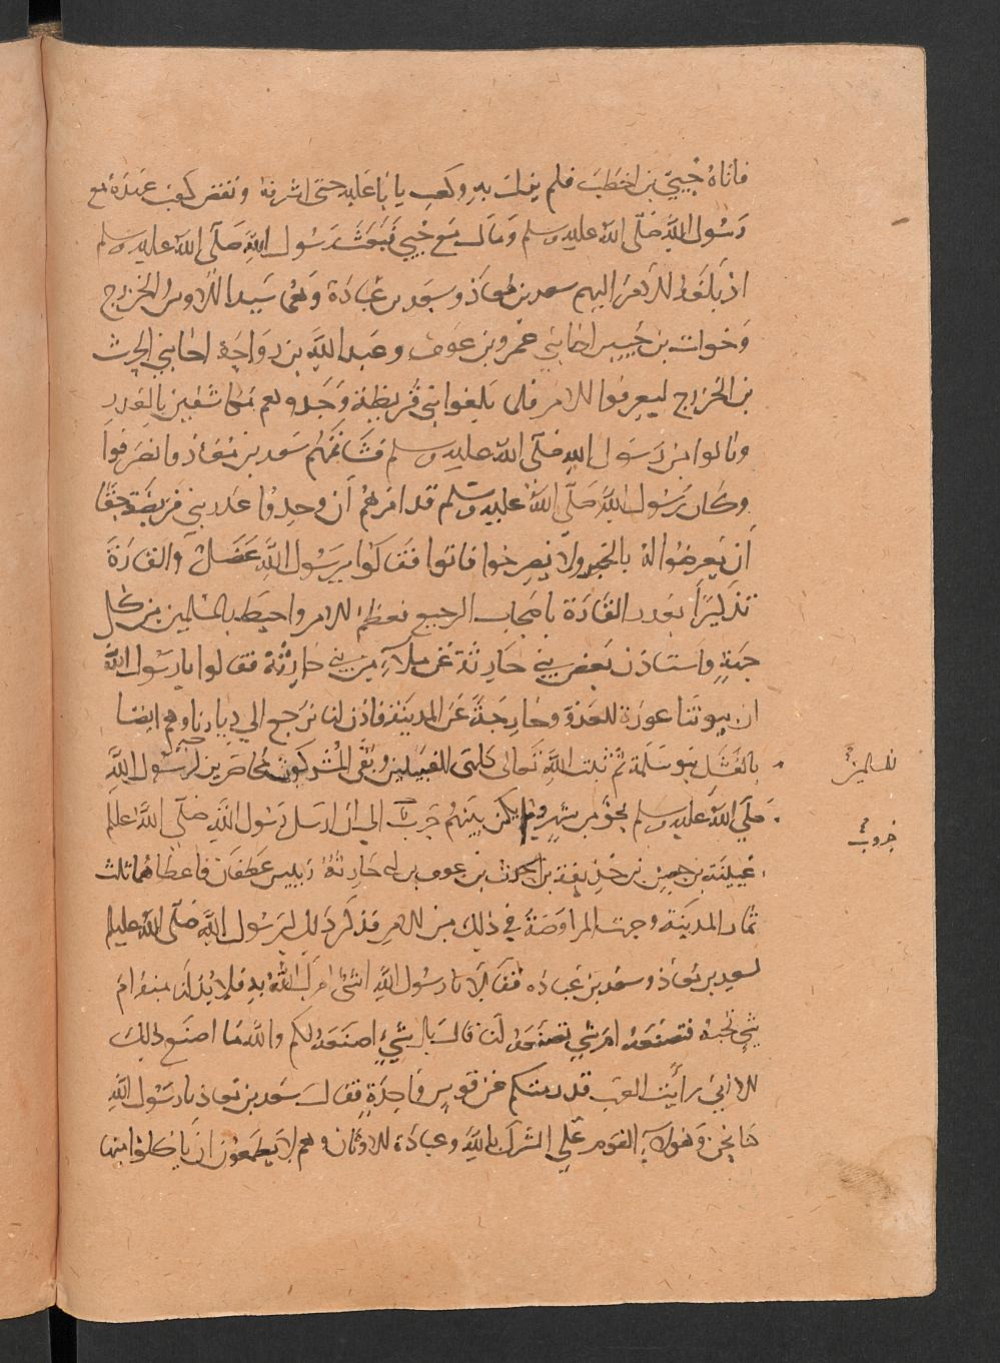 فاتاهُ حُيَيّ بن اخطَبَ فلم يزل بهِ وكعب يابَا عَليه حتى اثر فيه ونقض كعبُ عَهدَهُ مع
رَسُول اللَّه صَلّى اللّه عليه وسلم وَمَال مَع حُيي فَبَعَثَ رَسُول اللّهِ صَلّى اللّه عليه وسلم
اذ بَلَغهُ الامرُ اليهم سعد بن مُعاذ وسَعد بن عُبَادَة وَهُما سَيدا الاوس والخزرج
وَخوات بن جُبَير اخا بني عَمرو بن عَوف وعَبد اللَّهِ بن رَوَاحَة اخا بني الحرث
بن الخزرج ليعرفوا الامر فلما بَلَغوا بني قُريظة وَجَدوهم مكاشفين بالغدر
ونالوا من رَسَول اللهِ صَلّى اللّه عليه وسلم فشَاتمَهُم سَعد بن مُعَاذ وانصَرفوا
وكان رَسُول اللَّهِ صَلّى اللَّهُ عليه وسلم قد امَرهُمْ اَن وجدوا غدر بني قريضة حقًا
اَن يُعرضُوا لهُ بالخبر ولا يُصرحوا فاتوا فقَالوا يرَسُول اللَّهِ عَضَل والقارَةَ
تذكيرًا بغدر القَارَة باصحاب الرجيع فعظمَ الامر واحيَط بالمسلمين من كل
جهَةٍ واستاذن بَعض بني حَارثة عَن مَلآءٍ مِن بني حَارثَة فقالوا يا رَسُول اللهِ
ان بيوتَنا عورَة للعَدوّ وخارجَةً عَن المدينَة فاذن لنا نَرجع الي دِيارنا وهم ايضا
بالفَشَل بَنو سَلمَة ثم ثبت اللَّه تَعالى كلتى القبيلتين وبَقي المُشركون مُحاصرين لرَسُول اللَّهِ
صَلّي اللّه عليه وسلم نحوَ من شهر ولم يكن بَينَهُم حَرب الي ان ارسَل رَسُول اللَّهِ صَلّى اللَّهُ عليه
عُيينَة بن حِصن بن حُذيفة بن الحرث بن عوف بن ابي حَارثَة رَييس غَطفَان فاعطاهُما ثلث
ثمار المدينَة وجرت المراوَضَةُ في ذلِك من الامر فذكَر ذلك رَسُول اللَّهِ صَلّى اللّه عليه
لسعد بن مُعَاذ وسَعد بن عُبَادَه فقَالَا يا رسُول اللَّهِ اشئ امرَك اللَّهُ بهِ فلا بُدّ لَنَا منه ام
شي تحبهُ فنصنَعهُ ام شي تصنَعهُ لَنا قالَ بل شيءٍ اصنَعهُ لكم واللَّه ما اصنَع ذلك
الا اني رأيت العَرب قد رمتكم عن قوسٍ وَاحِدَةٍ فقال سَعد بن مُعاذ يا رَسُول اللَّهِ
كنا نحن وَهولآءِ القوم عَلي الشرك باللَّهِ وعبَادَة الاوثان وهم لا يَطمعُونَ ان ياكلوا منها
المسلمين
حروب